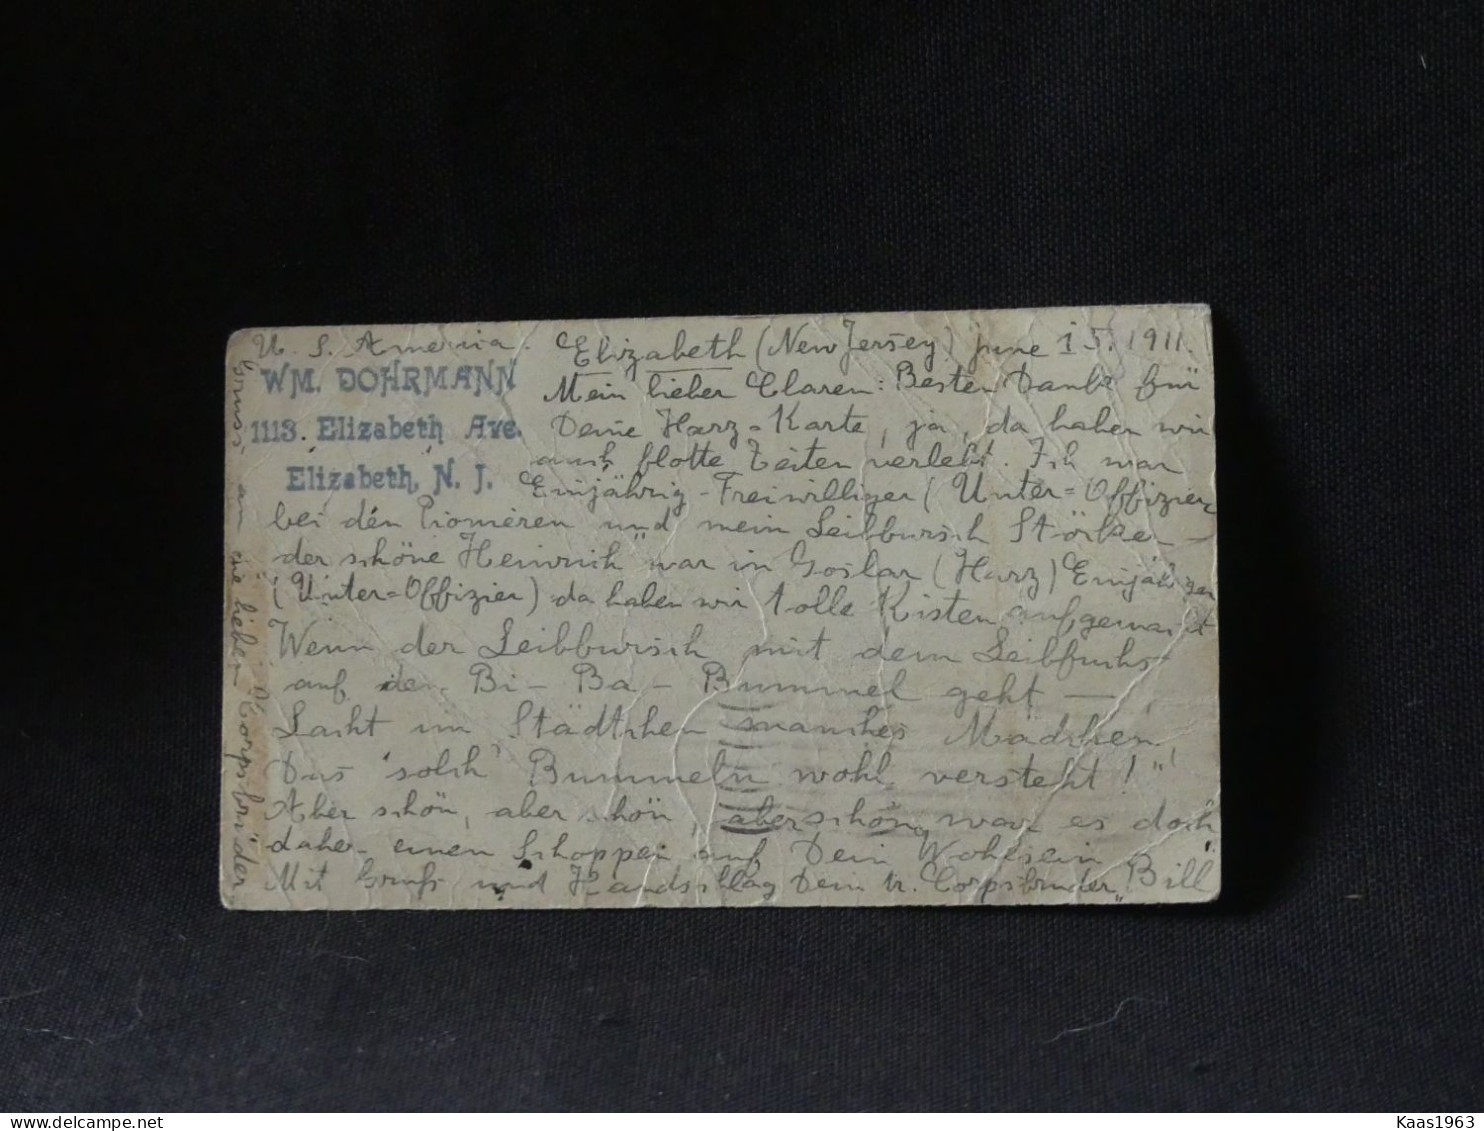 U. S. America.
WM. DOHRMANN
1113. Elizabeth Ave.
Elizabeth, N. J.
Elizabeth (New Jersey) June 15. 1911.
Mein lieber Claren: Besten Dank für
Deine Harz-Karte, ja, da haben wir
auch flotte Zeiten verlebt. Ich war
Einjährig-Freiwilliger (Unter-Offizier
bei den Pionieren und mein Leibbursch Störke
der schöne Heinrich" war in Goslar (Harz) Einjähriger
(Unter-Offizier) da haben wir tolle Kisten aufgemacht
Wenn der Leibbursch mit dem Leibfuchs
auf den Bi-Ba-Bummel geht —
Lacht im Städtchen manches Mädchen,
Das 'solch' Bummeln wohl versteht!"
Aber schön, aber schön, aber schön war es doch
daher einen Schoppen auf Dein Wohlsein
Mit Gruß und Handschlag Dein tr. Corpsbruder „Bill
Gruss an die lieben Corpsbrüder
Kaas1963